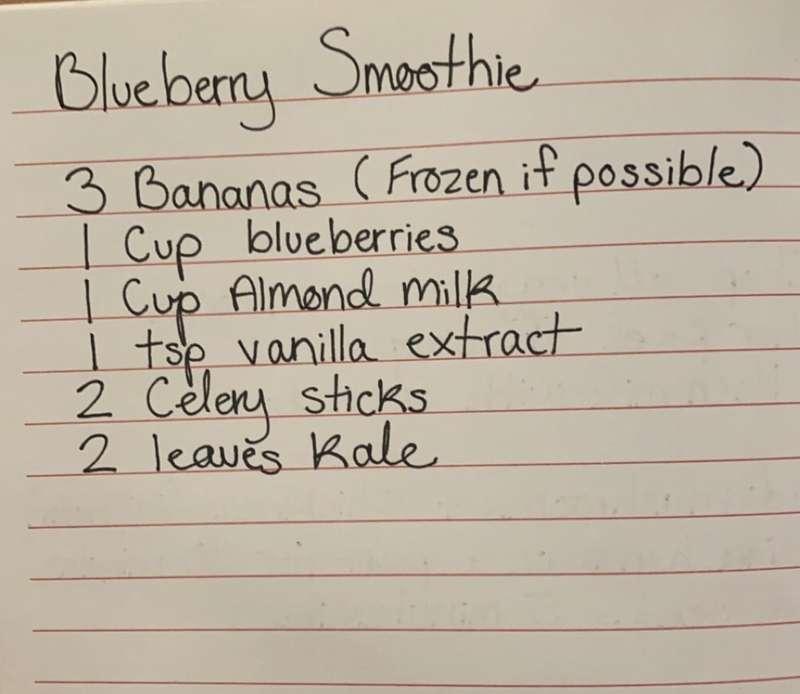 Blueberry Smoothie
3 Bananas (Frozen if possible)
1 Cup blueberries
1 Cup Almond milk
1 tsp vanilla extract
2 Celery sticks
2 leaves Kale